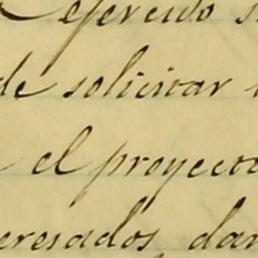 Ejercido
de solicitar
el proyecto
eresados, dan